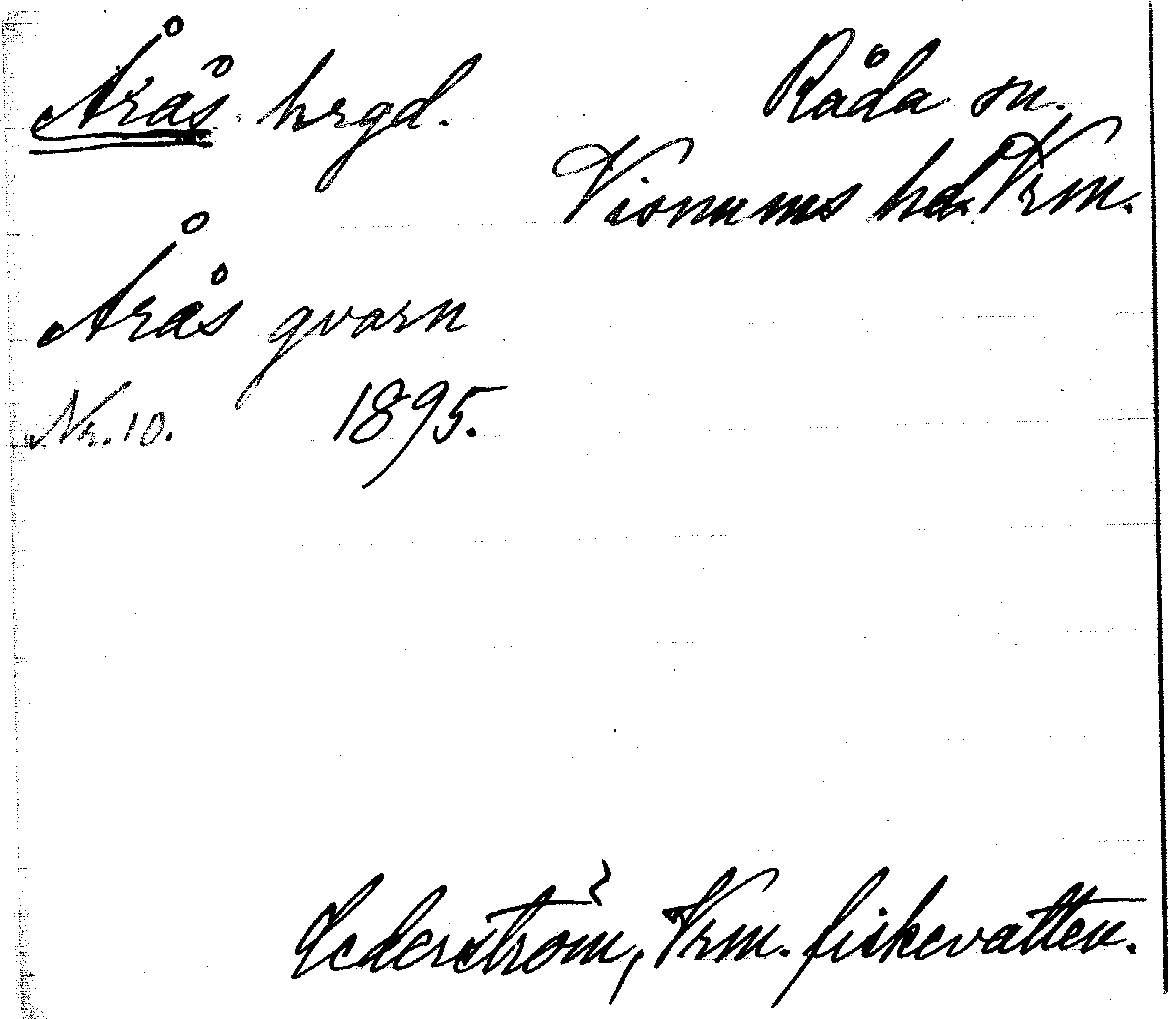 Årås hrgd. Råda sn.
Visnums hd. Vrm.
Årås qvarn
Nr. 10. 1895.
Cederström, Vrm. fiskevatten.